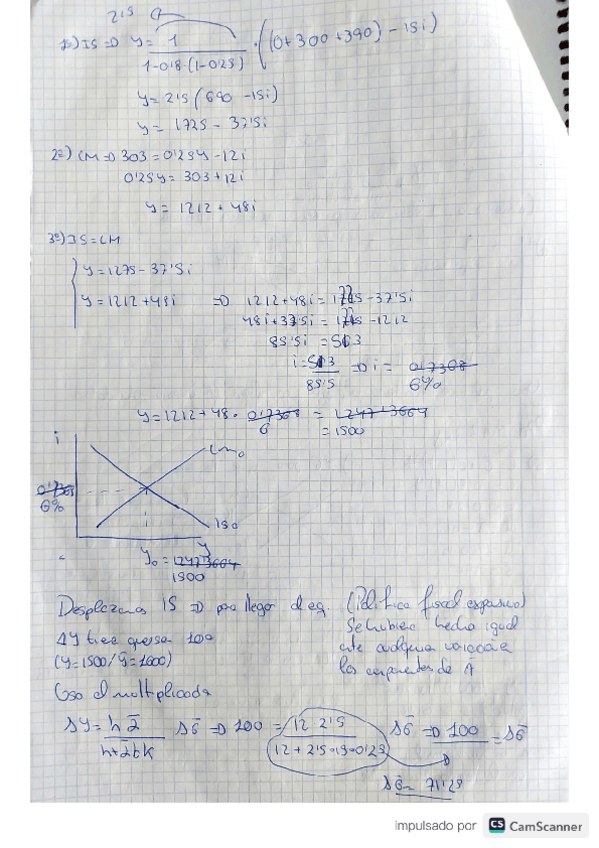 2'5
1º) IS => Y = 1 / 1-0'8·(1-0'25) · ((0+300+390) - 15i)
Y = 2'5 (690 - 15i)
Y = 1725 - 37'5i
2º) LM => 303 = 0'25Y - 12i
0'25Y = 303 + 12i
Y = 1212 + 48i
3º) IS = LM
Y = 1275 - 37'5i
Y = 1212 + 48i => 1212 + 48i = 1725 - 37'5i
48i + 37'5i = 1725 - 1212
85'5i = 513
i = 513 / 85'5 => i = 0'7368
6%
Y = 1212 + 48 · 0'7368 = 1247'3664
6 = 1500
i
LM0
6%
IS0
Y
Y0 = 1247'3664
1500
Desplazamos IS => para llegar al eq. (Política fiscal expansiva)
ΔY tiene que ser 100
(Y=1500/Ȳ=1600)
Se hubiera hecho igual
ante cualquier variación
los componentes de Ā
Uso el multiplicador
ΔY = h ᾱ / h+ᾱbk ΔḠ => 100 = 12 2'5 / 12 + 2'5·15·0'25 ΔḠ => 100 = ΔḠ
ΔḠ = 71'25
impulsado por CS CamScanner